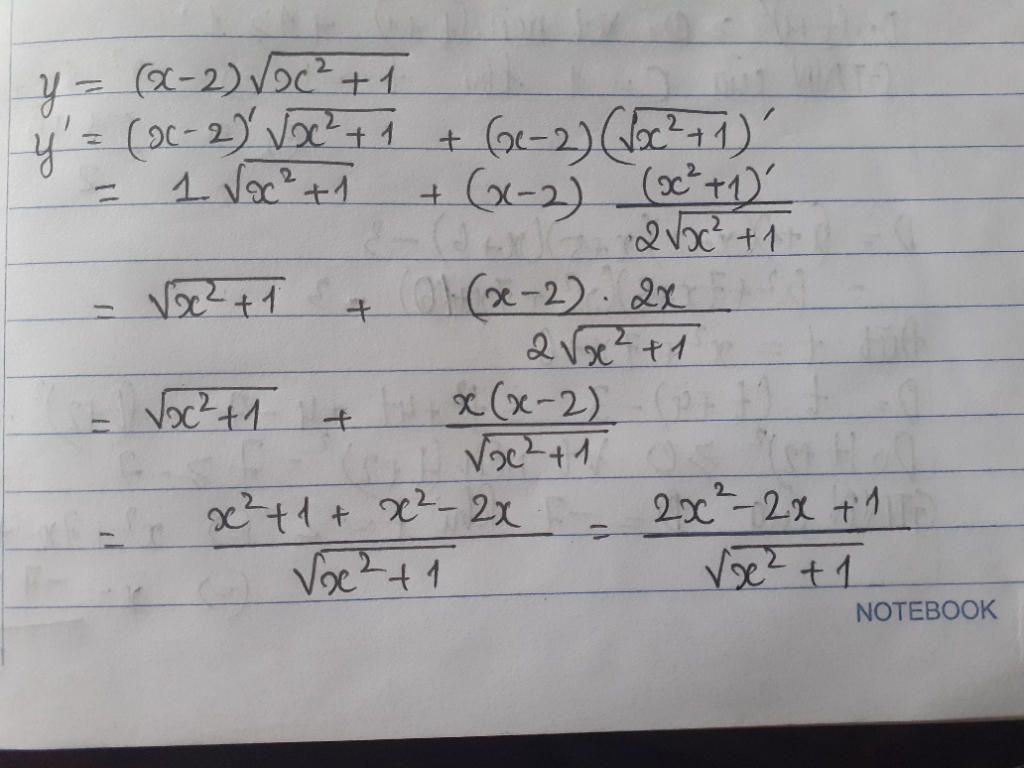 y = (x-2)√(x²+1)
y' = (x-2)'√(x²+1) + (x-2)(√(x²+1))'
= 1.√(x²+1) + (x-2) (x²+1)'/(2√(x²+1))
= √(x²+1) + ((x-2).2x)/(2√(x²+1))
= √(x²+1) + (x(x-2))/(√(x²+1))
= (x²+1+x²-2x)/(√(x²+1)) = (2x²-2x+1)/(√(x²+1))
NOTEBOOK